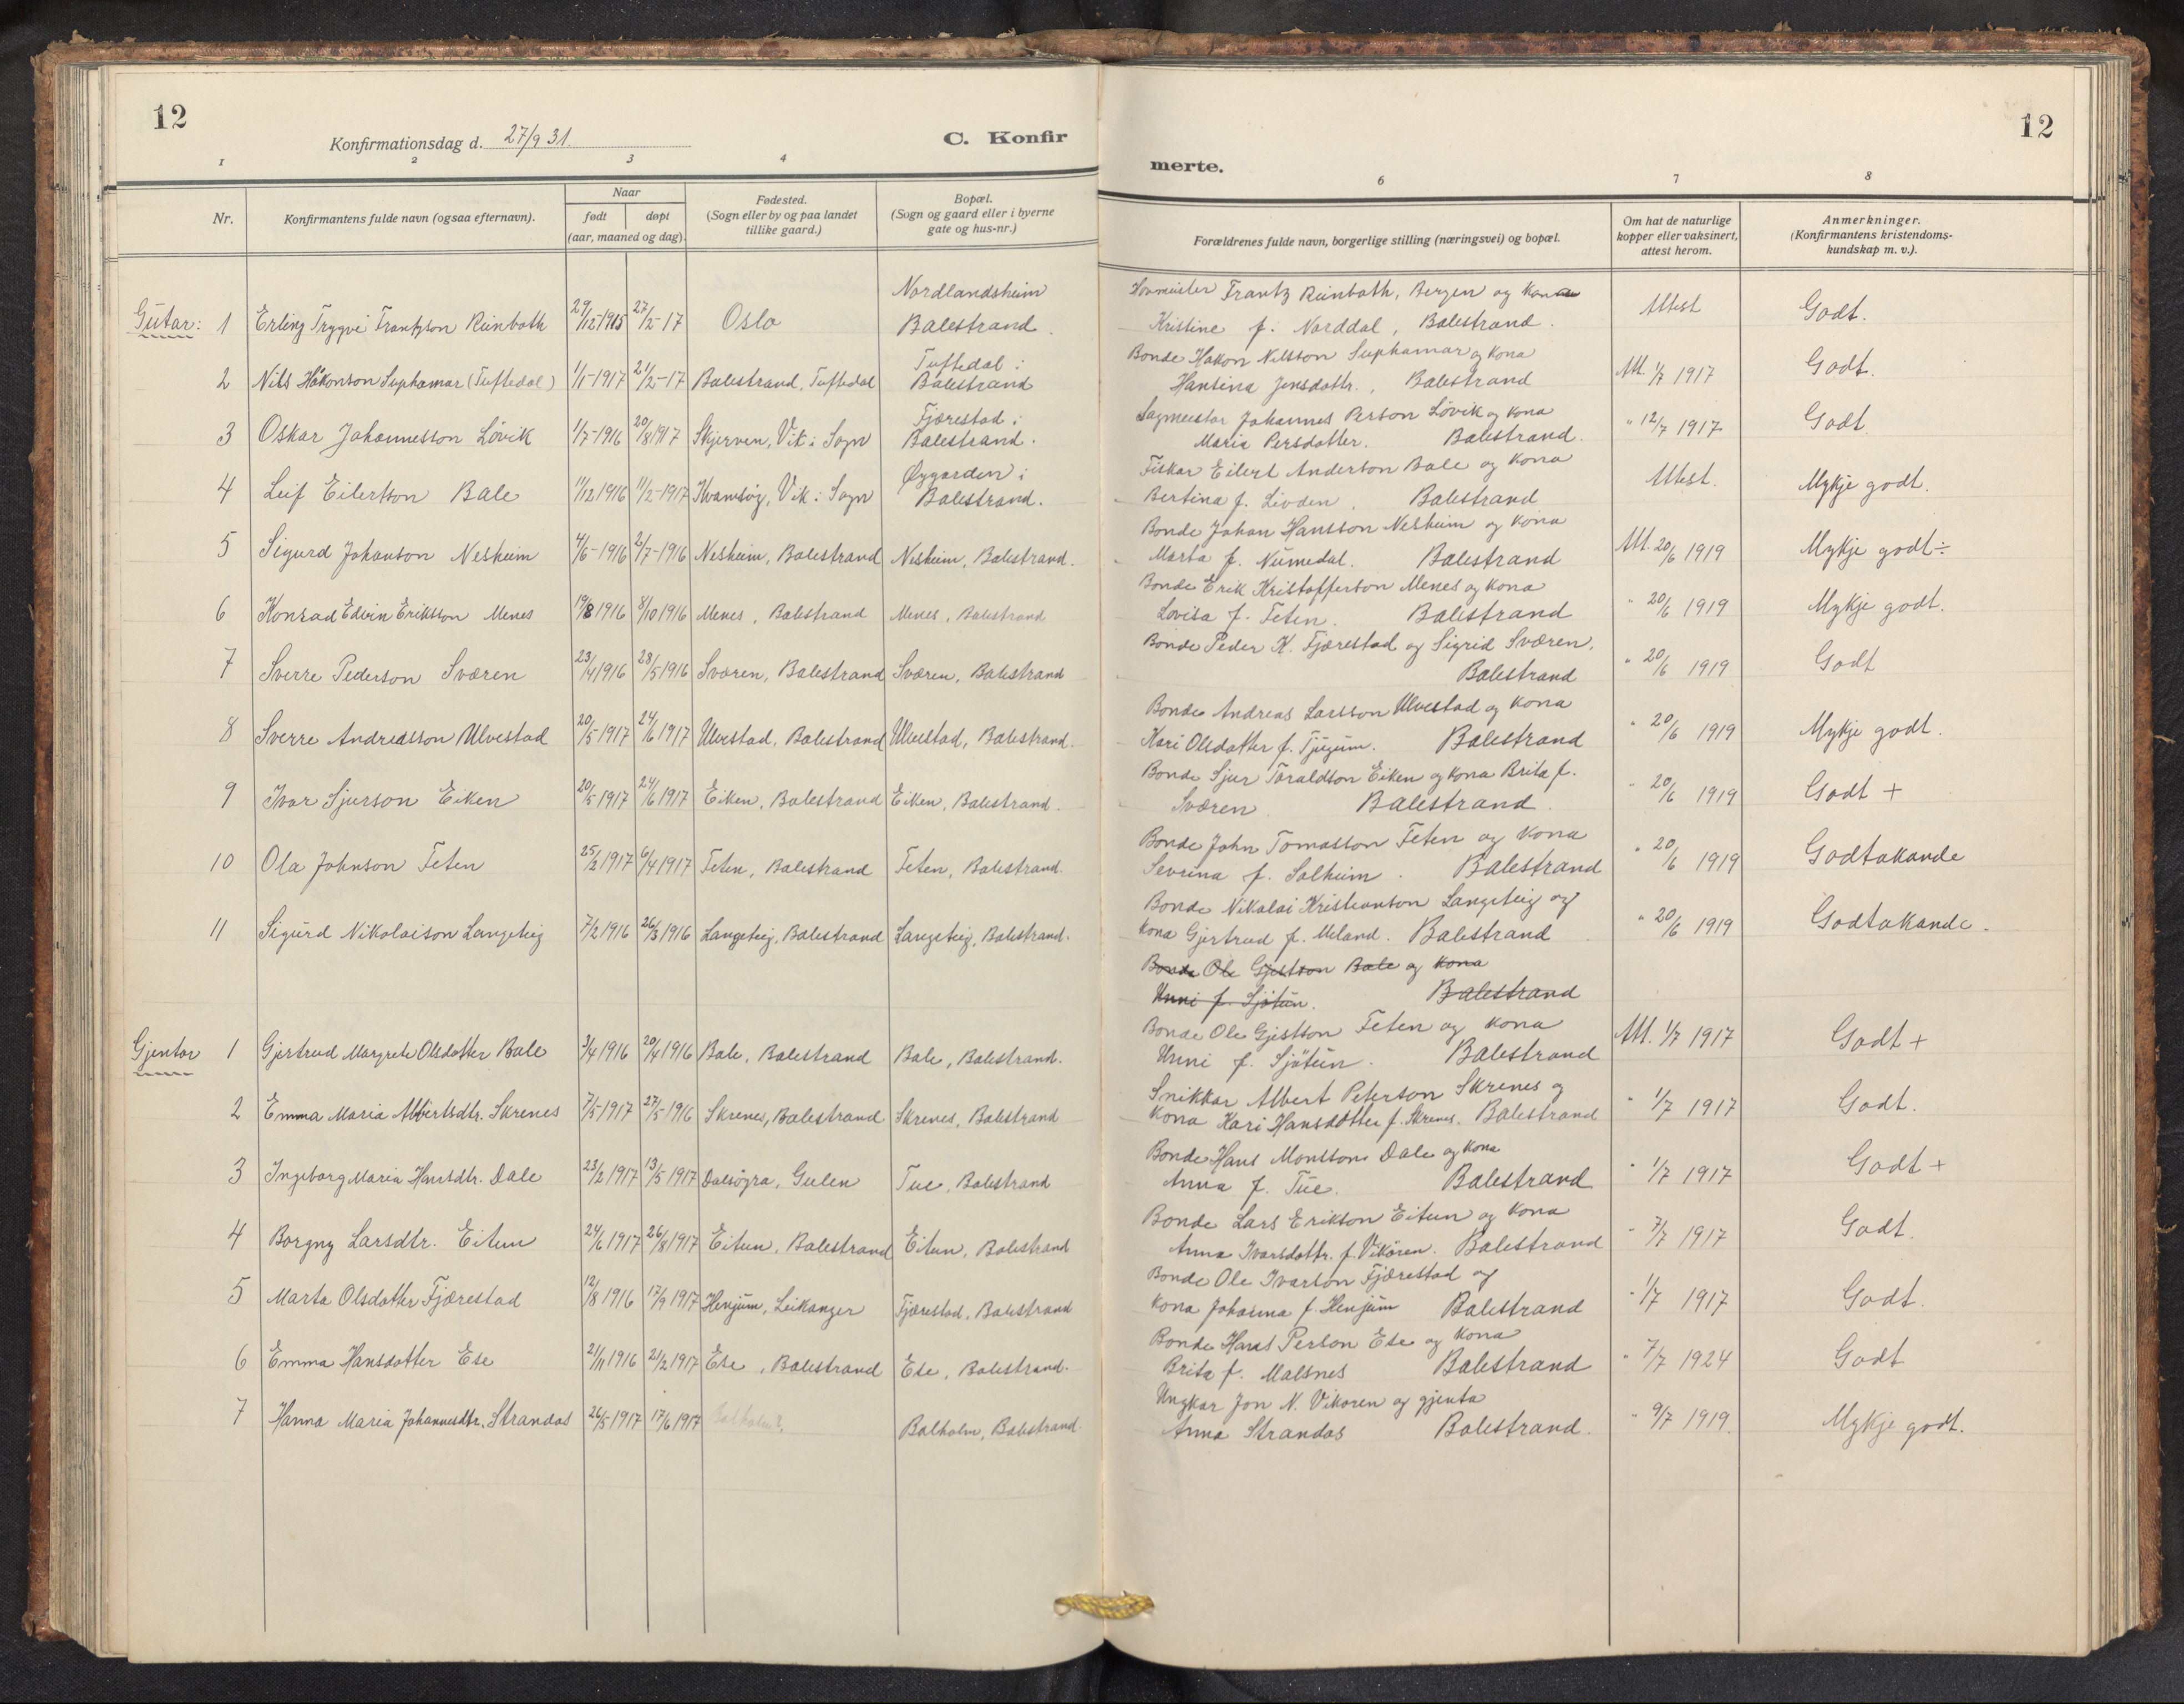 12
Konfirmationsdag d. 27/9 31.
C. Konfir
1 2 3 4
Nr.
Konfirmantens fulde navn (ogsaa efternavn).
Naar
født døpt
(aar, maaned og dag).
Fødested.
(Sogn eller by og paa landet
tillike gaard.)
Bopæl.
(Sogn og gaard eller i byerne
gate og hus-nr.)
Nordlandsheim
Gutar: 1 Erling Trygve Frantzson Reinboth 29/12-1915 27/2-17 Oslo Balestrand.
Tuftedal i
2 Nils Håkonson Suphamar (Tuftedal) 1/1-1917 21/2-17 Balestrand, Tuftedal Balestrand
Fjærestad i
3 Oskar Johannesson Lövik 1/7-1916 20/8 1917 Skjerven, Vik i Sogn Balestrand.
Øygarden i
4 Leif Eilertson Bale 11/12 1916 11/2-1917 Kvamsöy, Vik i Sogn Balestrand.
5 Sigurd Johanson Nesheim 4/6-1916 2/7-1916 Nesheim, Balestrand Nesheim, Balestrand.
6 Konrad Edvin Eriksson Menes 19/8 1916 8/10 1916 Menes, Balestrand Menes, Balestrand
7 Sverre Pederson Sværen 23/4 1916 28/5 1916 Sværen, Balestrand Sværen, Balestrand
8 Sverre Andreasson Ulvestad 20/5 1917 24/6 1917 Ulvestad, Balestrand Ulvestad, Balestrand.
9 Ivar Sjurson Eiken 20/5 1917 24/6 1917 Eiken, Balestrand Eiken, Balestrand.
10 Ola Johnson Feten 25/2 1917 6/4 1917 Feten, Balestrand Feten, Balestrand.
11 Sigurd Nikolaison Langeteig 7/2 1916 26/3 1916 Langeteig, Balestrand Langeteig, Balestrand.
Gjentor 1 Gjertrud Margrete Olsdotter Bale 3/4 1916 20/4 1916 Bale, Balestrand Bale, Balestrand.
2 Emma Maria Albertsdtr. Skrenes 7/5 1917 27/5 1916 Skrenes, Balestrand Skrenes, Balestrand
3 Ingeborg Maria Hansdtr. Dale 23/2 1917 13/5 1917 Dalsöyra, Gulen Tue, Balestrand
4 Borgny Larsdtr. Eitun 24/6 1917 26/8 1917 Eitun, Balestrand Eitun, Balestrand
5 Marta Olsdotter Fjærestad 12/8 1916 17/9 1917 Henjum, Leikanger Fjærestad, Balestrand
6 Emma Hansdotter Ese 21/11 1916 21/2 1917 Ese, Balestrand Ese, Balestrand.
7 Hanna Maria Johannesdtr. Strandos 26/5 1917 17/6 1917 Balholm? Balholm, Balestrand
12
merte.
6 7 8
Forældrenes fulde navn, borgerlige stilling (næringsvei) og bopæl.
Om hat de naturlige
kopper eller vaksinert,
attest herom.
Anmerkninger.
(Konfirmantens kristendoms-
kundskap m. v.).
Hovmeister Frantz Reinboth, Bergen og kona
Kristine f. Norddal, Balestrand. Attest Godt.
Bonde Hakon Nilsson Suphamar og kona
Hansina Jensdottr., Balestrand Att. 1/7 1917 Godt.
Sagmeister Johannes Person Lövik og kona
Maria Persdotter. Balestrand. " 12/7 1917 Godt
Fiskar Eilert Anderson Bale og kona
Bertina f. Lioden. Balestrand Attest. Mykje godt.
Bonde Johan Hansson Nesheim og kona
Marta f. Numedal. Balestrand Att. 20/6 1919 Mykje godt ÷
Bonde Erik Kristofferson Menes og kona
Lovisa f. Feten. Balestrand " 20/6 1919 Mykje godt.
Bonde Peder K. Fjærestad og Sigrid Sværen.
Balestrand " 20/6 1919 Godt
Bonde Andreas Larsson Ulvestad og kona
Kari Olsdotter f. Tjugum. Balestrand " 20/6 1919 Mykje godt.
Bonde Sjur Toraldson Eiken og kona Brita f.
Sværen Balestrand. " 20/6 1919 Godt +
Bonde John Tomasson Feten og kona
Sevrina f. Solheim. Balestrand " 20/6 1919 Godtakande
Bonde Nikolai Kristianson Langeteig og
kona Gjertrud f. Meland. Balestrand " 20/6 1919 Godtakande.
Bonde Ole Gjestson Bale og kona
Unni f. Sjötun. Balestrand
Bonde Ole Gjestson Feten og kona
Unni f. Sjötun. Balestrand Att. 1/7 1917 Godt +
Snikkar Albert Peterson Skrenes og
kona Kari Hansdotter f. Skrenes. Balestrand " 1/7 1917 Godt.
Bonde Hans Monsson Dale og kona
Anna f. Tue. Balestrand " 1/7 1917 Godt +
Bonde Lars Erikson Eitun og kona
Anna Ivarsdottr. f. Vikören. Balestrand " 7/7 1917 Godt.
Bonde Ole Ivarson Fjærestad og
kona Johanna f. Henjum Balestrand " 1/7 1917 Godt.
Bonde Hans Person Ese og kona
Brita f. Malsnes Balestrand " 7/7 1924 Godt
Ungkar Jon N. Vikoren og gjenta
Anna Strandos Balestrand. " 9/7 1919. Mykje godt.